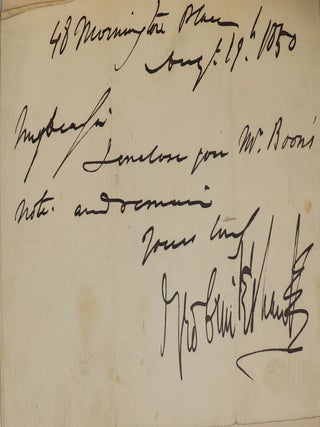 48 Mornington Place
Augt. 19th. 1850
My dear Sir
I enclose you Mr. Boon's
note. and remain
Yours truly
Geo Cruikshank